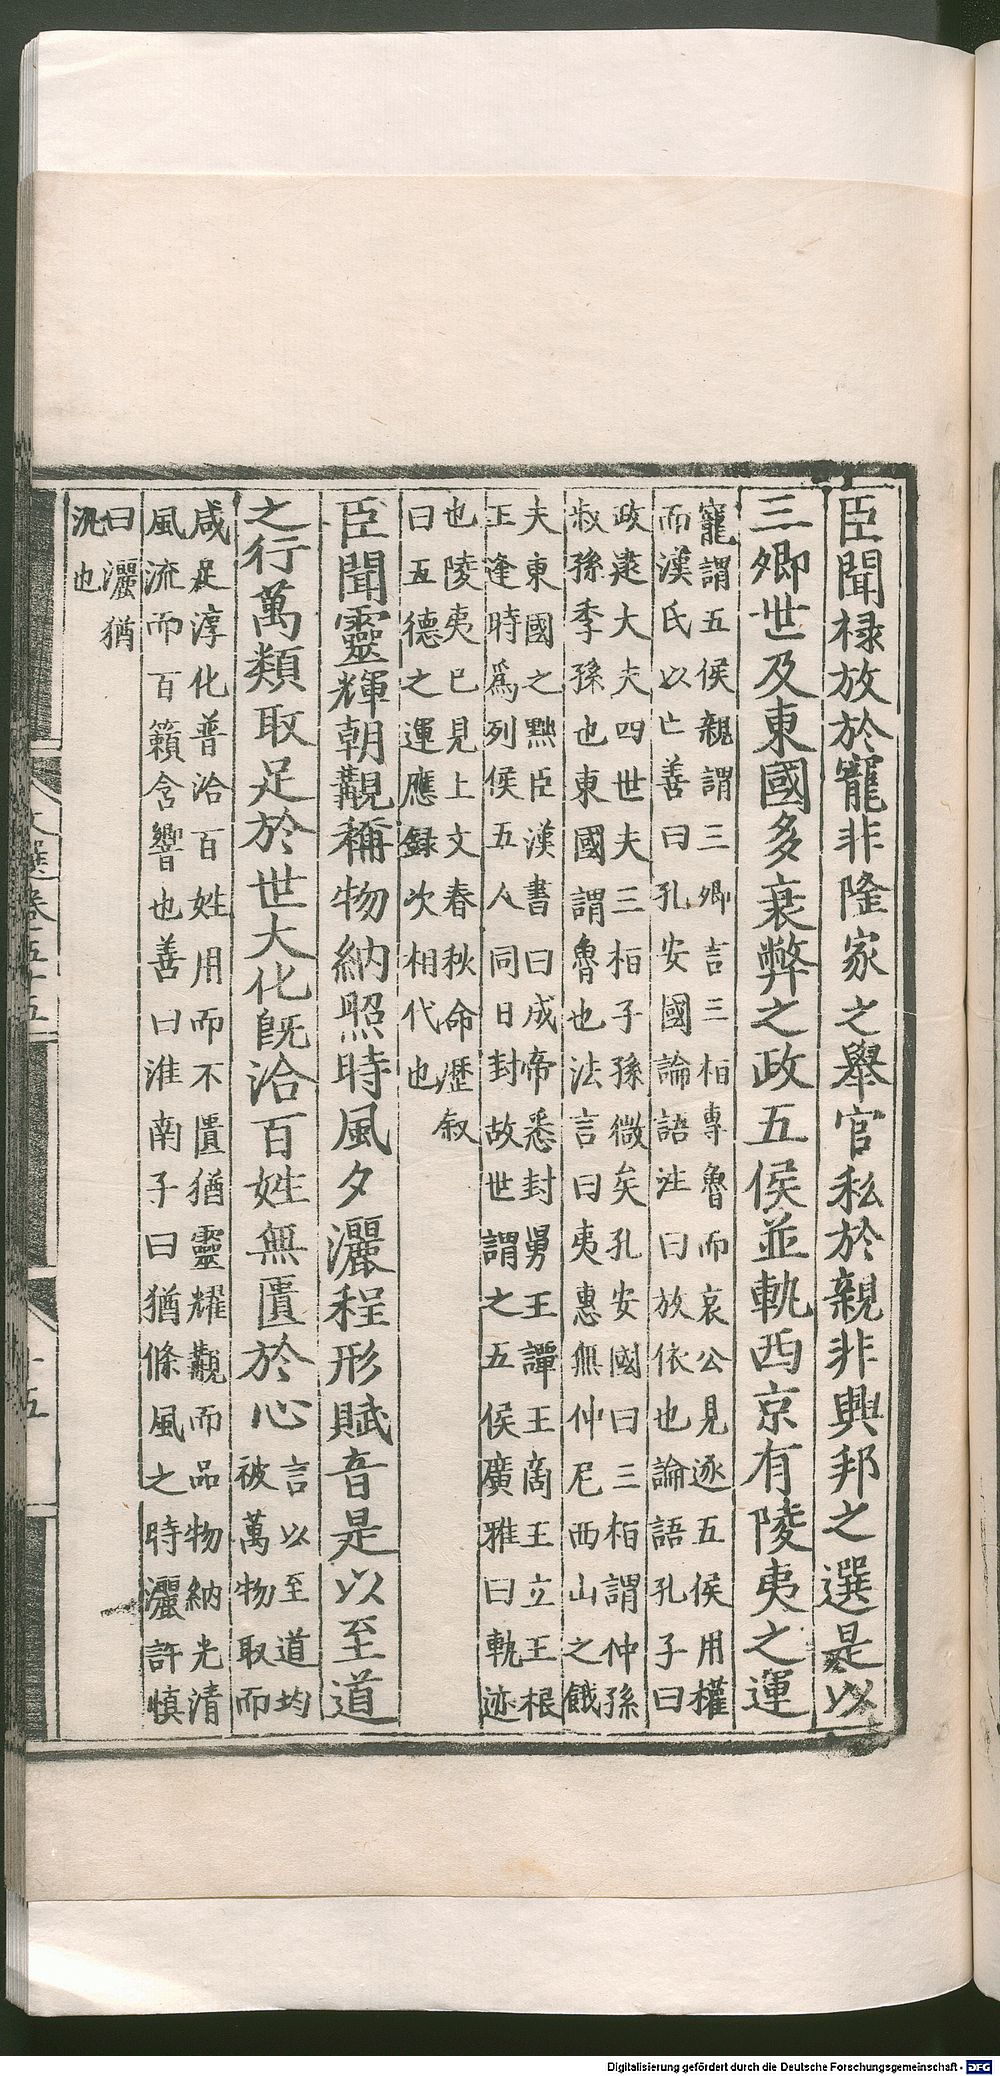 臣聞祿放於寵非隆家之舉官私於親非興邦之選是以
三卿世及東國多衰弊之政五侯並軌西京有陵夷之運
寵謂五侯親謂三卿言三桓專魯而哀公見逐五侯用權
而漢氏以亡善曰孔安國論語注曰放依也論語孔子曰
政逮大夫四世夫三桓子孫微矣孔安國曰三桓謂仲孫
叔孫季孫也東國謂魯也法言曰夷惠無仲尼西山之餓
夫東國之黜臣漢書曰成帝悉封舅王譚王商王立王根
王逢時爲列侯五人同日封故世謂之五侯廣雅曰軌迹
也陵夷已見上文春秋命歷叙
曰五德之運應錄次相代也
臣聞靈輝朝覯稱物納照時風夕灑程形賦音是以至道
之行萬類取足於世大化旣洽百姓無匱於心
言以至道均
被萬物取而
咸足淳化普洽百姓用而不匱猶靈耀覯而品物納光清
風流而百籟含響也善曰淮南子曰猶條風之時灑許慎
曰灑猶
汎也
文選卷五十五
十五
Digitalisierung gefördert durch die Deutsche Forschungsgemeinschaft - DFG